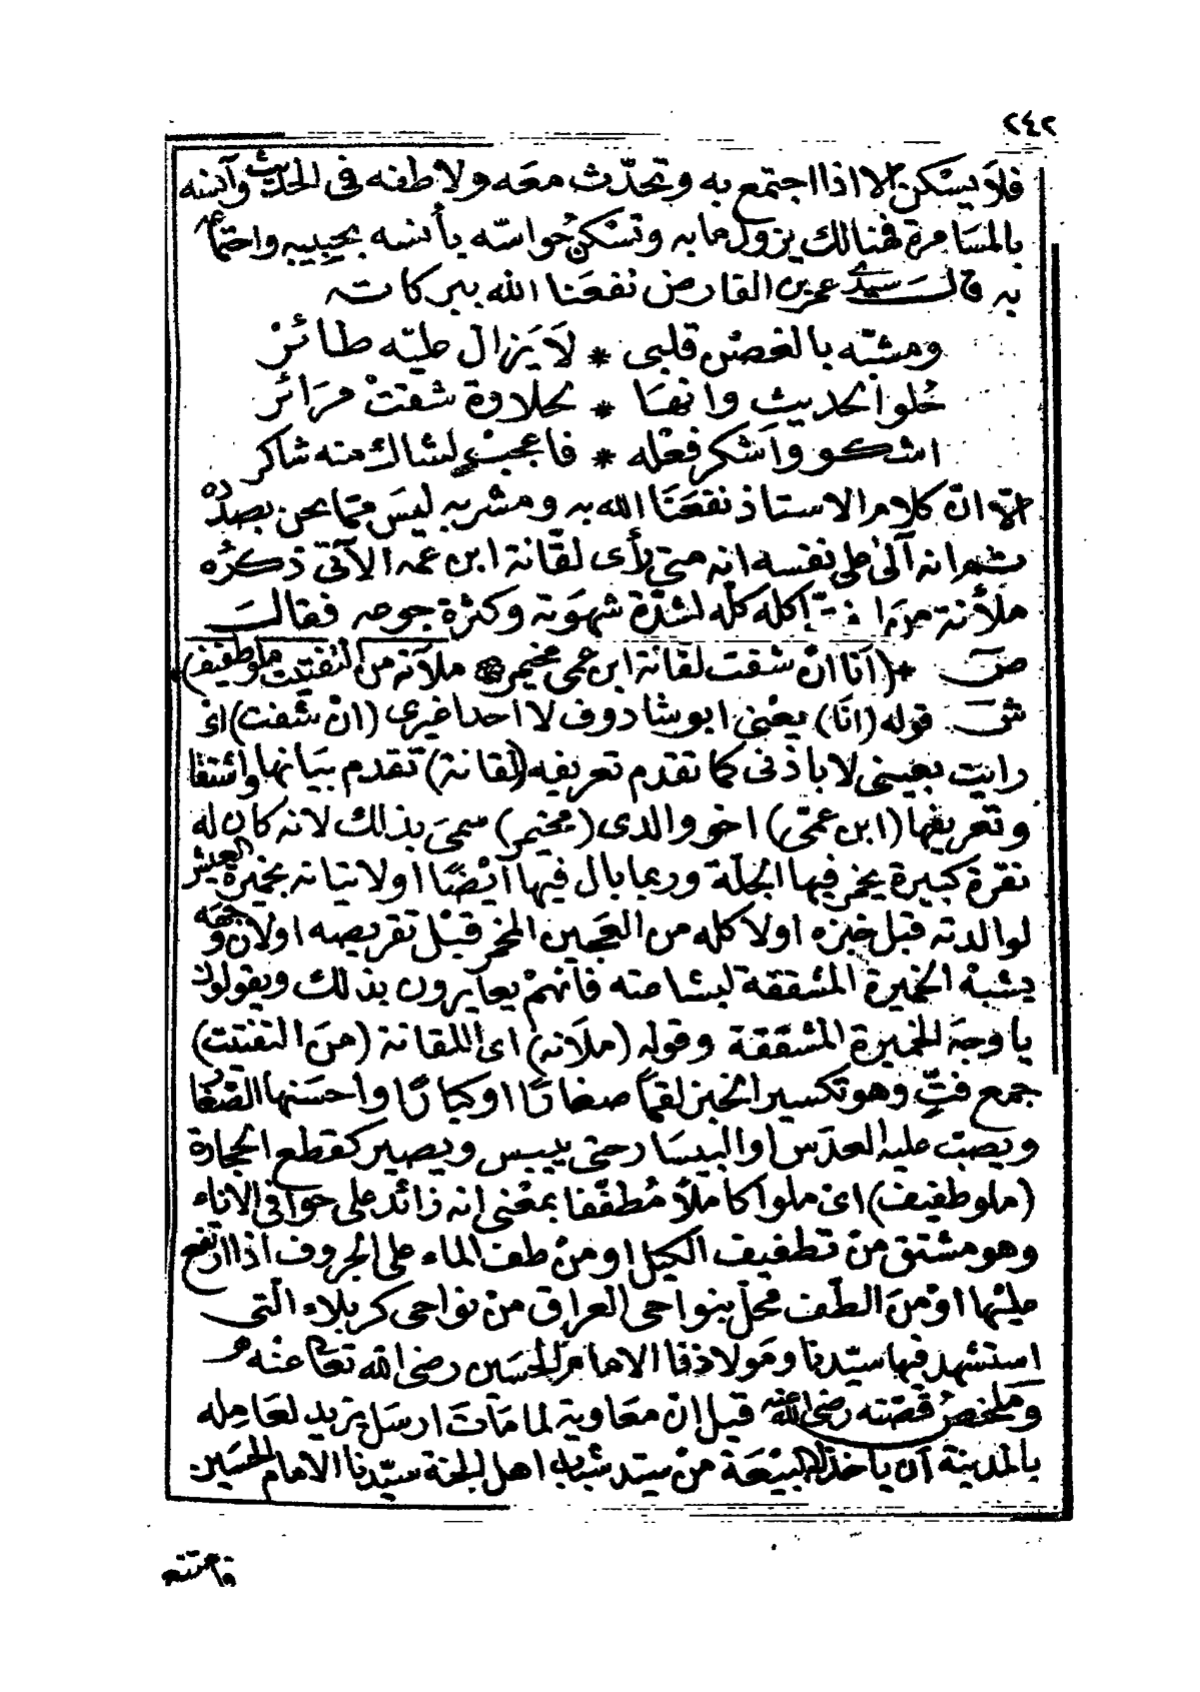 ٢٤٢
فلا يسكن الا اذا اجتمع به وتحدّث معه ولاطفه فى الحديث وآنسه
بالمسامرة فهنالك يزول ما به وتسكن حواسّه بأنسه بحبيبه واجتماعه
به قالــ سيدى عمر بن الفارض نفعنا الله ببركاته
ومشبّه بالغصن قلبى * لا يزال عليه طائر
حُلو الحديث وانها * لحلاوة شقت مرائر
اشكو واشكر فعله * فاعجب لشاك منه شاكر
الّا انّ كلام الاستاذ نفعنا الله به ومشربه ليس ممّا نحن بصدده
ثم انه آلى على نفسه انه متى رأى لقّانة ابن عمه الآتى ذكره
ملأنة اكله كلّه لشدّة شهوته وكثرة جوعه فقالــ
صــ * (انا انْ شفت لقانة ابن عمى مخيمر * ملآنه من التفتيت ملو طفيف) *
شــ قوله (انا) يعنى ابو شادوف لا احدا غيرى (انْ شفت) اىْ
رايت بعينى لا باذنى كما تقدم تعريفه (لقانة) تقدم بيانها واشتقا
وتعريفها (ابن عمّى) اخو والدى (مخيمر) سمى بذلك لانه كان له
نقرة كبيرة يخمر فيها الجلّة وربما بال فيها ايضًا او لاتيانه بخميرة العيش
لوالدته قبل خبزه او لاكله من العجين المخمر قبل تقريصه او لان وجهه
يشبه الخميرة المشققة لبشاعته فانهمْ يعايرون بذلك ويقولون
يا وجه الخميرة المشققة وقوله (ملآنه) اى اللقانة (من التفتيت)
جمع فتٍّ وهو تكسير الخبز لقمًا صغارًا او كبارًا واحسنها الصّغار
ويصبّ عليه العدس او البيسار حتى ييبس ويصير كقطع الحجارة
(ملو طفيف) اىْ ملوا كاملاً مُطفّفا بمعنى انه زائد على حوافى الاناء
وهو مشتق منْ تطفيف الكيل او منْ طف الماء على الجروف اذا ارتفع
عليْها اوْ من الطّف محلّ بنواحى العراق منْ نواحى كربلاء التى
استشهد فيها سيّدنا ومولانا الامام الحسين رضى الله تعالى عنْه
وملخص قصّته رضى الله عنه قيل انْ معاوية لما مات ارسل يزيد لعامله
بالمدينة ان ياخذ له البيْعة منْ سيّد شباب اهل الجنة سيّدنا الامام الحسين
فامتنع